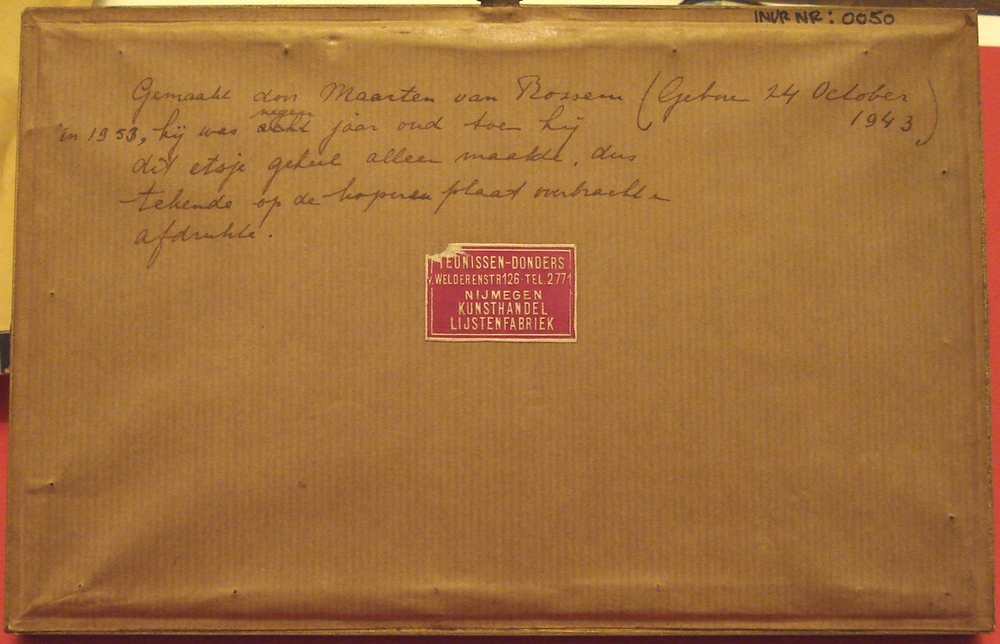 INVR NR: 0050
Gemaakt door Maarten van Rossem (Geboren 24 October
1943)
in 1953, hij was negen acht jaar oud toen hij
dit etsje geheel alleen maakte, dus
tekende op de koperen plaat overbracht en
afdrukte.
TEUNISSEN-DONDERS
v. WELDERENSTR 126 - TEL. 2771
NIJMEGEN
KUNSTHANDEL
LIJSTENFABRIEK